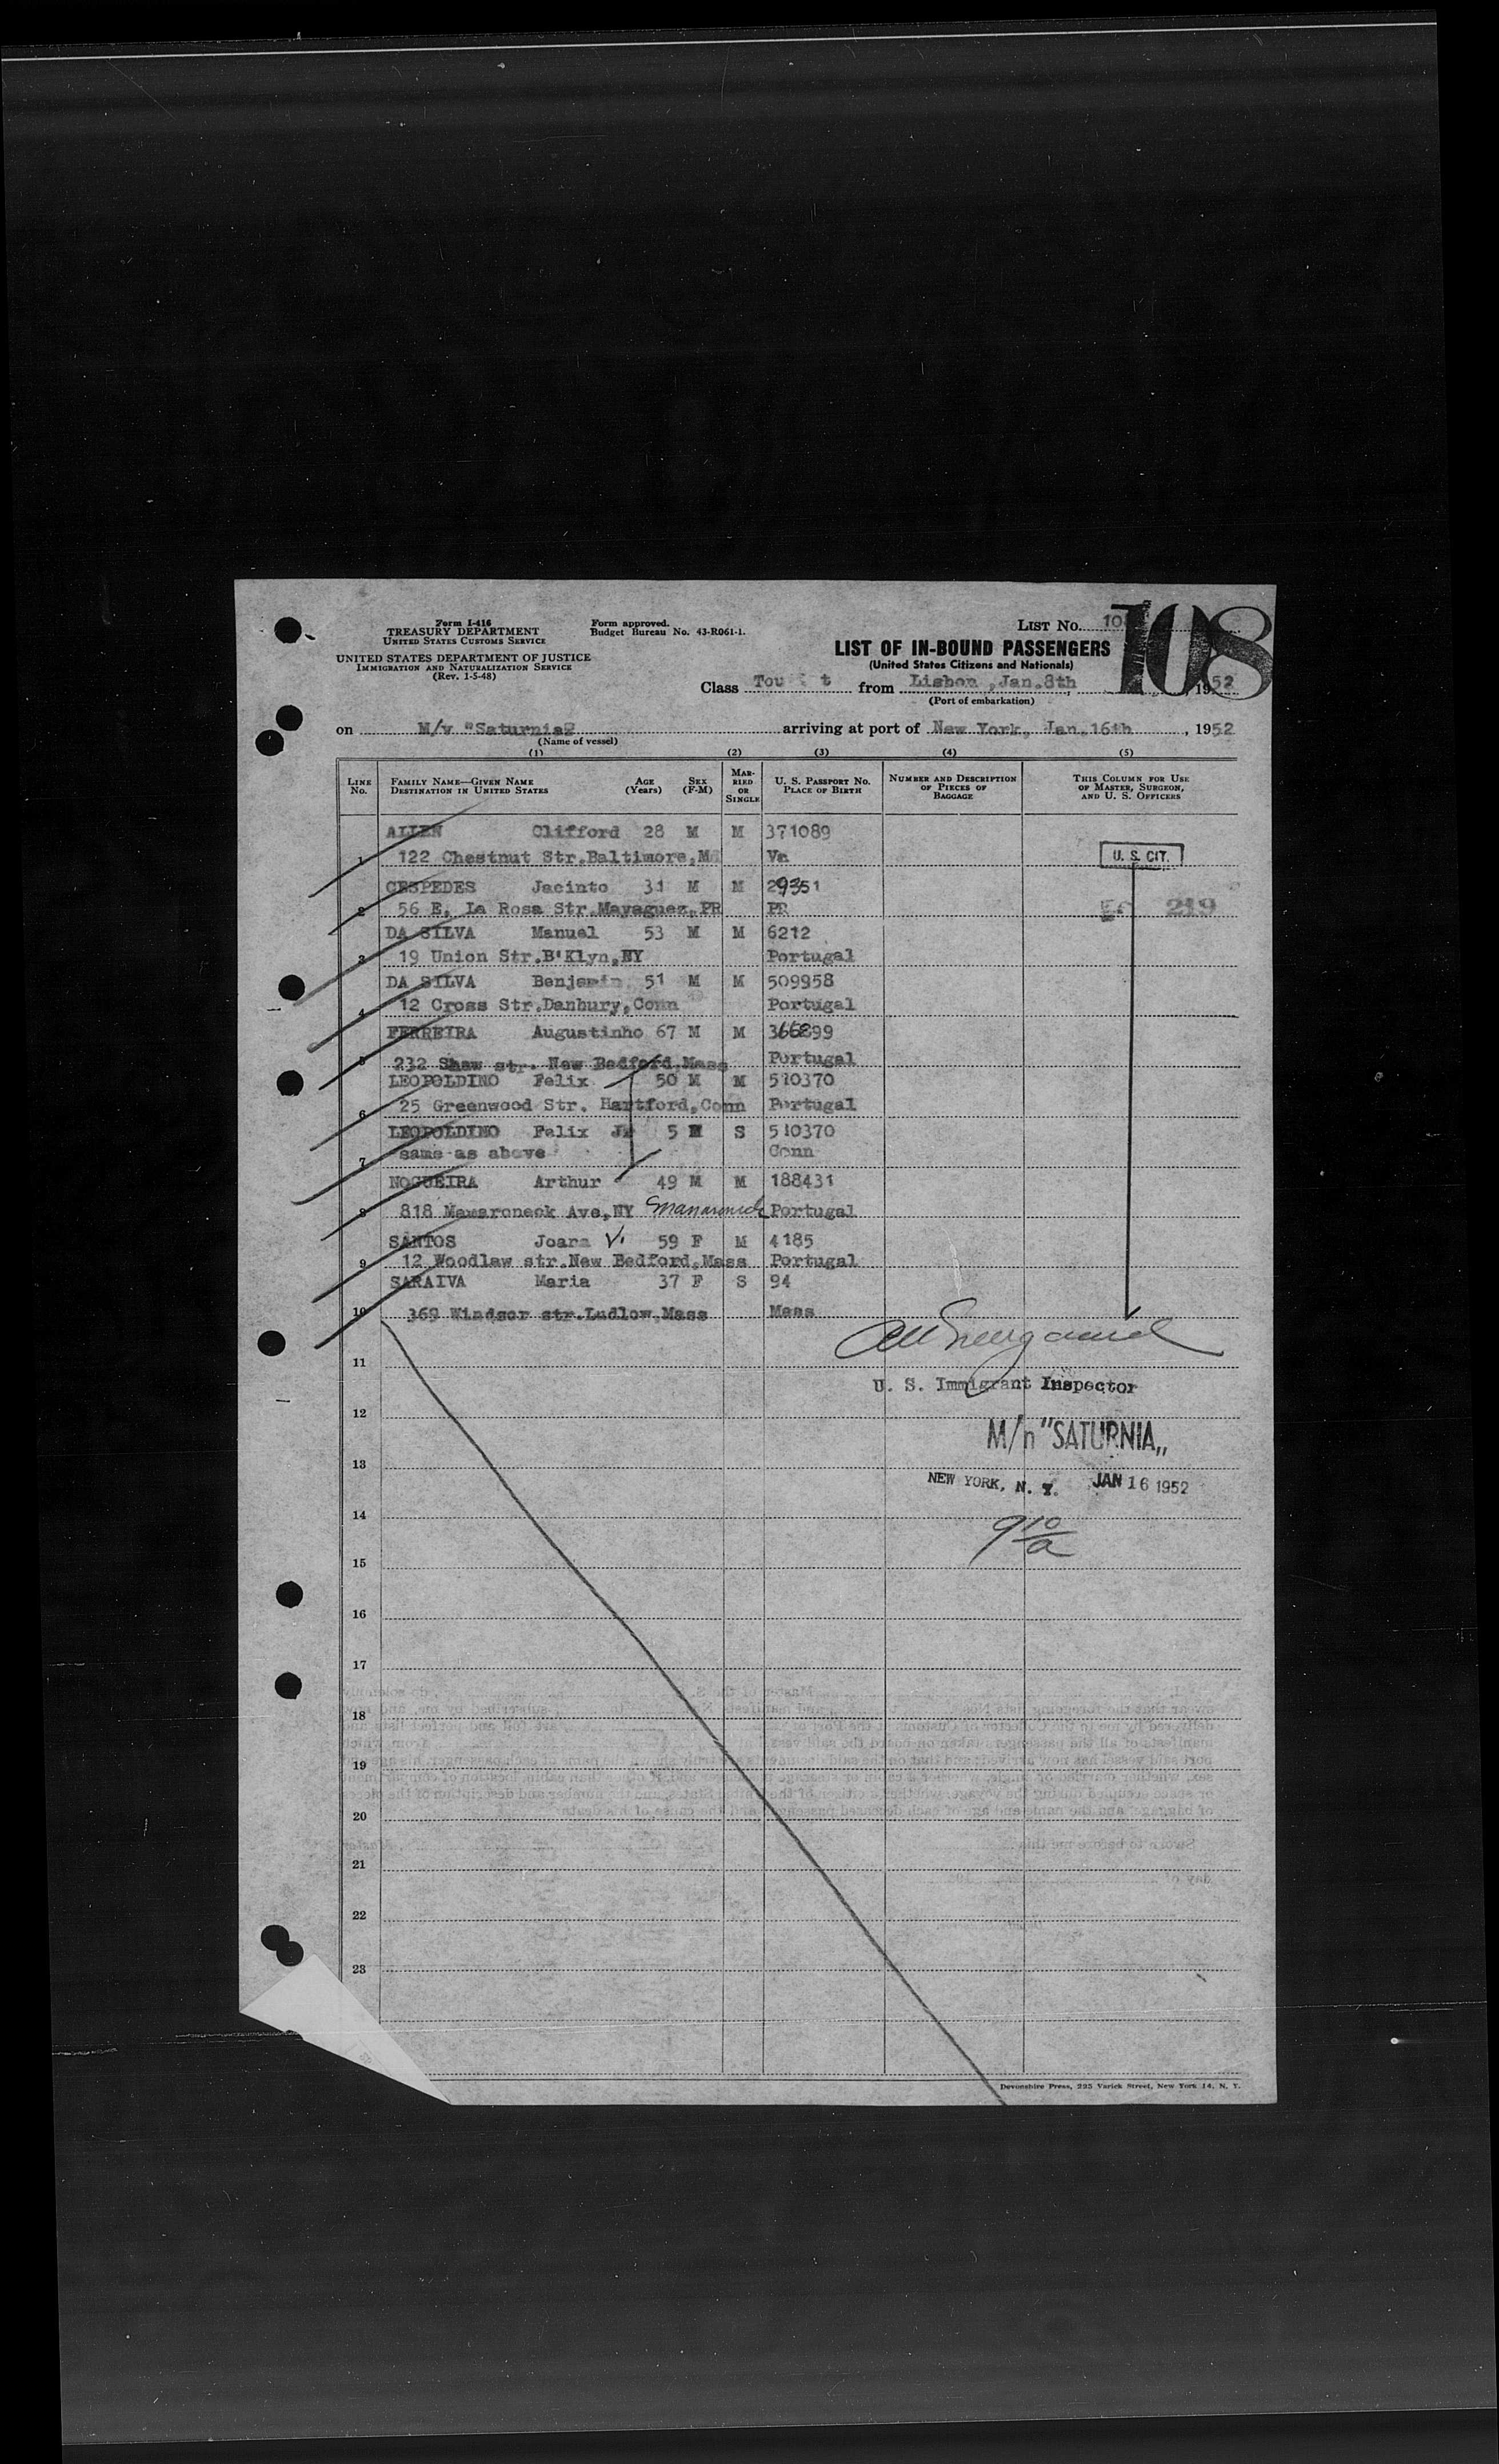 Form I-416
TREASURY DEPARTMENT
UNITED STATES CUSTOMS SERVICE
UNITED STATES DEPARTMENT OF JUSTICE
IMMIGRATION AND NATURALIZATION SERVICE
(Rev. 1-5-48)
Form approved.
Budget Bureau No. 43-R061-1.
LIST NO. 10
108
LIST OF IN-BOUND PASSENGERS
(United States Citizens and Nationals)
Class Tou t from Lisbon, Jan.8th, 1952
(Port of embarkation)
on M/v "Saturnia" arriving at port of New York, Jan.16th, 1952
(Name of vessel)
(1) (2) (3) (4) (5)
LINE NO. FAMILY NAME—GIVEN NAME DESTINATION IN UNITED STATES AGE (Years) SEX (F-M) MARRIED OR SINGLE U. S. PASSPORT NO. PLACE OF BIRTH NUMBER AND DESCRIPTION OF PIECES OF BAGGAGE THIS COLUMN FOR USE OF MASTER, SURGEON, AND U. S. OFFICERS
ALLEN Clifford 28 M M 371089
1 122 Chestnut Str.Baltimore,M Va U. S. CIT.
CESPEDES Jacinto 31 M M 29351
2 56 E. La Rosa Str.Mayaguez,PR PR 219
DA SILVA Manuel 53 M M 6212
3 19 Union Str.B'Klyn,NY Portugal
DA SILVA Benjamin 51 M M 509958
4 12 Cross Str.Danbury,Conn Portugal
FERREIRA Augustinho 67 M M 366899
5 232 Shaw str. New Bedford,Mass Portugal
LEOPOLDINO Felix 50 M M 510370
6 25 Greenwood Str. Hartford,Conn Portugal
LEOPOLDINO Felix Jr 5 M S 510370
7 same as above Conn
NOGUEIRA Arthur 49 M M 188431
8 818 Mamaroneck Ave,NY Portugal
SANTOS Joara 59 F M 4185
9 12 Woodlaw str.New Bedford,Mass Portugal
SARAIVA Maria 37 F S 94
10 369 Windsor str.Ludlow Mass Mass
11
U. S. Immigrant Inspector
12
M/n "SATURNIA"
13
NEW YORK, N. Y. JAN 16 1952
14
9 10/a
15
16
17
18
19
20
21
22
23
Devonshire Press, 225 Varick Street, New York 14, N. Y.